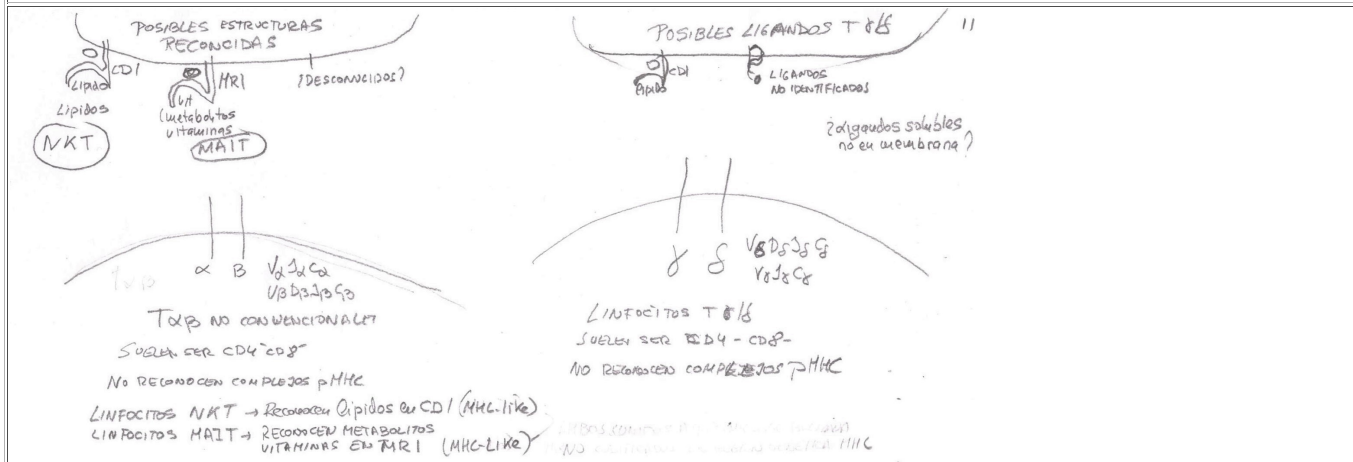 POSIBLES ESTRUCTURAS
RECONCIDAS
CD1
Lipido
Lipidos
NKT
MR1
vit
(metabolitos
vitaminas
MAIT
?DESCONOCIDOS?
α β Vα Jα Cα
Vβ Dβ Jβ Cβ
Tαβ NO CONVENCIONALES
SUELEN SER CD4-CD8-
NO RECONOCEN COMPLEJOS pMHC
LINFOCITOS NKT → Reconocen lipidos en CD1 (MHC-like)
LINFOCITOS MAIT → RECONOCEN METABOLITOS
VITAMINAS EN MR1 (MHC-LIKE)
POSIBLES LIGANDOS T γ/δ
11
CD1
lipidos
LIGANDOS
NO IDENTIFICADOS
?ligandos solubles
no en membrana?
γ δ Vδ Dδ Jδ Cδ
Vγ Jγ Cγ
LINFOCITOS T γ/δ
SUELEN SER CD4- CD8-
NO RECONOCEN COMPLEJOS pMHC